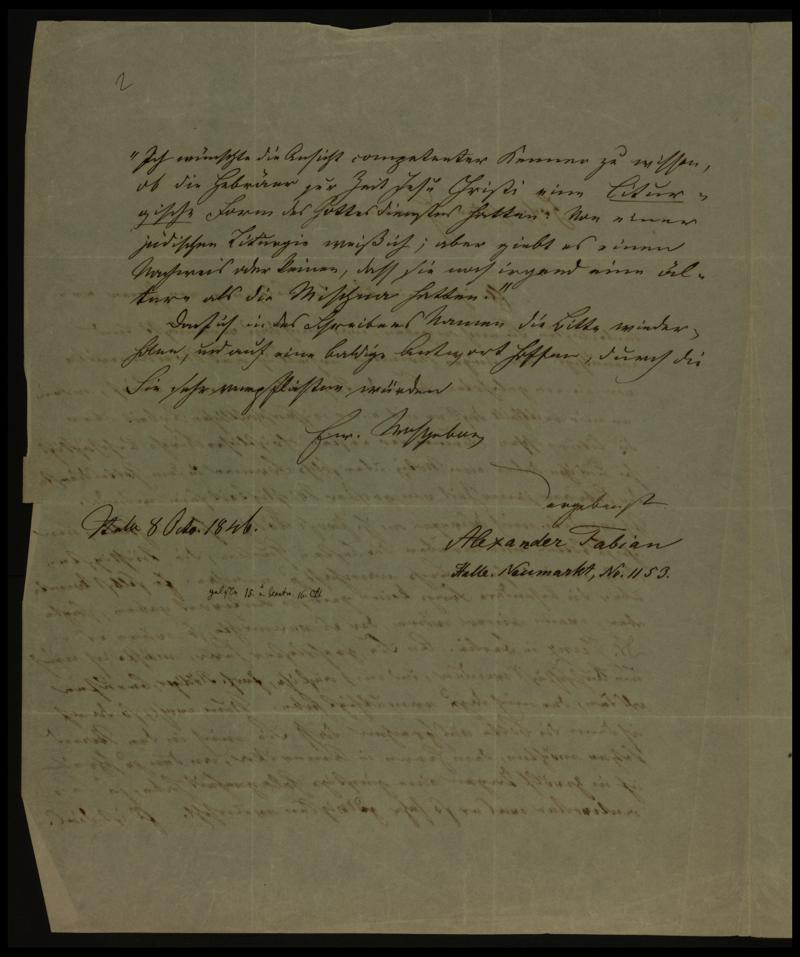 2
"Ich wünschte die Ansicht competenter Kenner zu wissen,
ob die Hebräer zur Zeit Jesu Christi eine Litur-
gische Form des Gottesdienstes hatten? Von einer
jüdischen Liturgie weiß ich; aber giebt es einen
Nachweis oder keinen, daß sie noch irgend eine äl-
tere als die Mischna hatten."
Darf ich in des Schreibers Namen die Bitte wieder-
holen, und auf eine baldige Antwort hoffen, durch die
Sie sehr verpflichten würden
Ew. Wohlgeboren
ergebenst
Halle 8 Octo. 1846.
Alexander Fabian
Halle. Neumarkt, No. 1153.
15. 16. Ctl